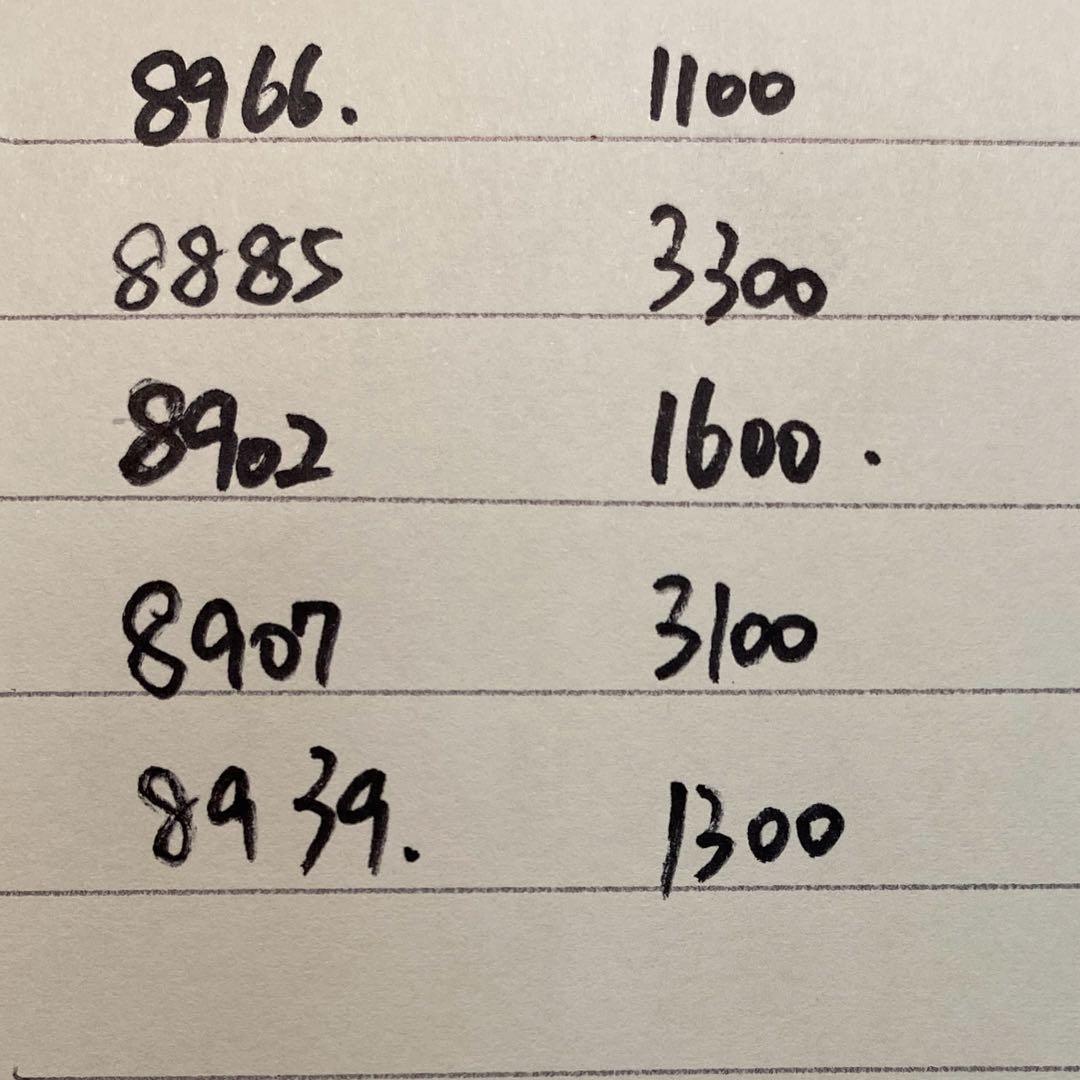 8966. 1100
8885 3300
8902 1600.
8907 3100
8939. 1300